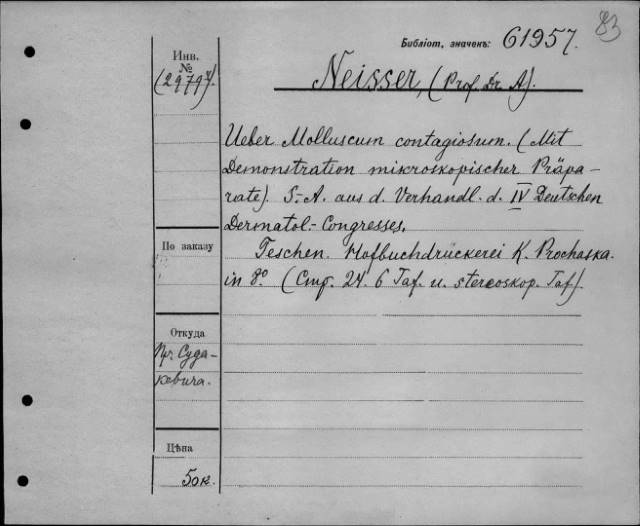 83
Библіот. значекъ: 61957.
Инв.
№
Neisser, (Prof. Dr A).
Ueber Molluscum contagiosum. (Mit
Demonstration mikroskopischer Präpa-
rate). S.-A. aus d. Verhandl. d. IV Deutschen
Dermatol.-Congresses.
По заказу
Teschen. Hofbuchdrückerei K. Prochaska.
in 8º. (Стр. 24. 6 Taf. u. stereoskop. Taf).
Откуда
Пр. Суда-
кевича.
Цѣна
50к.